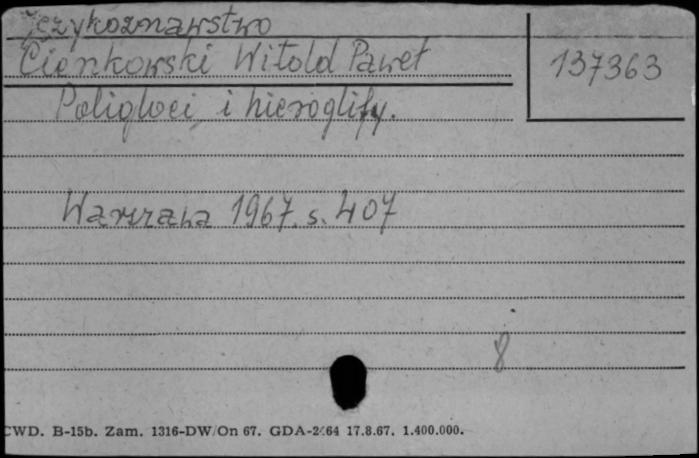 Językoznawstwo
Cienkowski Witold Paweł
137363
Poligloci i hieroglify.
Warszawa 1967. s. 407
8
CWD. B-15b. Zam. 1316-DW/On 67. GDA-2/64 17.8.67. 1.400.000.